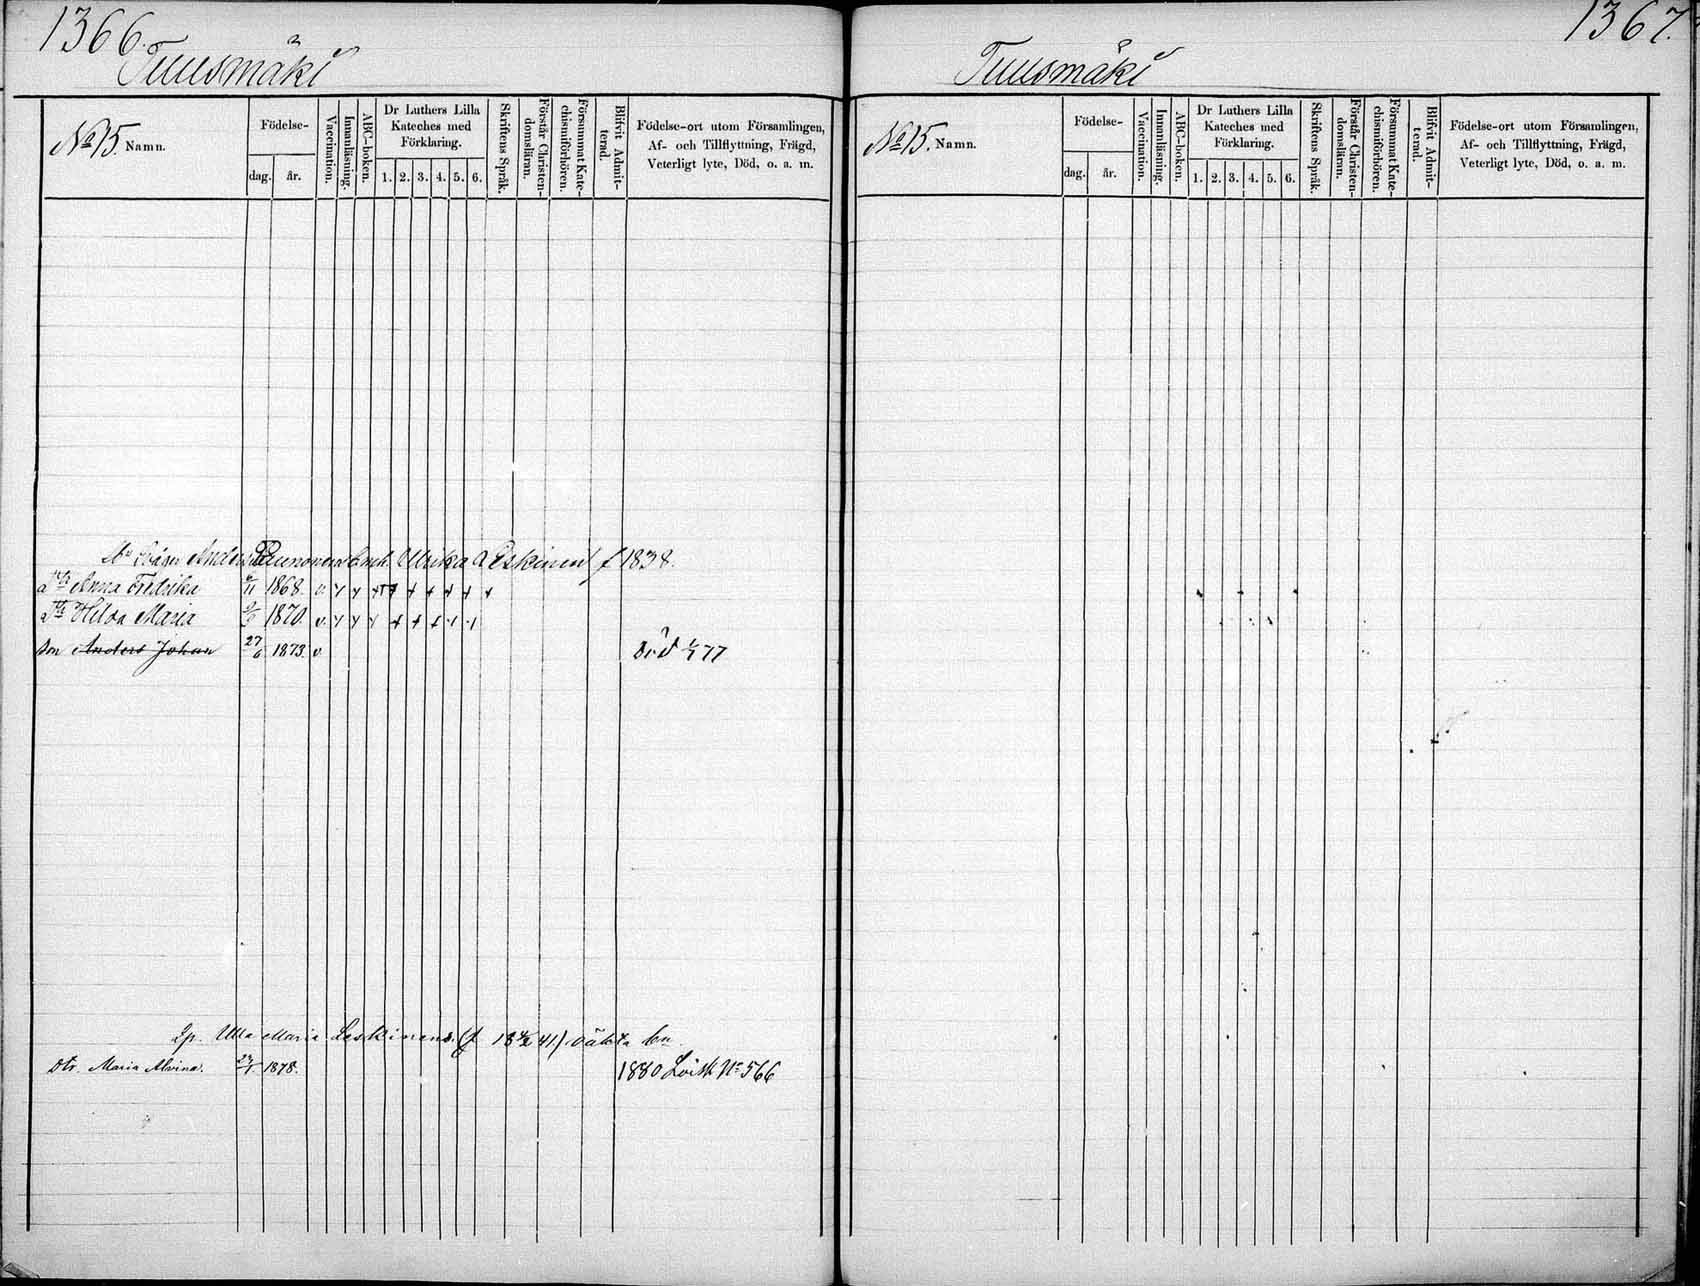 1366.
Tuusmäki
No 15. Namn.
Födelse-
dag. år.
Vaccination.
Innanläsning.
ABC-boken.
Dr Luthers Lilla
Kateches med
Förklaring.
1. 2. 3. 4. 5. 6.
Skriftens Språk.
Förstår Christen-
domsläran.
försummat Kate-
chismiförhören.
Blifvit Admit-
terad.
Födelse-ort utom Församlingen,
Af- och Tillflyttning, Frägd,
Veterligt lyte, Död, o. a. m.
Anders Ulrika Eskinen f 1838.
Anna Fredrika 11 1868. v.
Hilda Maria 1870. v.
Son Anders Johan 27/6 1873. v. Död 77
Ulla Maria Leskinens (f 18 41) oäkta bn.
Dtr. Maria Alvina. 1878. 1880 Lösk No 566
1367.
Tuusmäki
No 15. Namn.
Födelse-
dag. år.
Vaccination.
Innanläsning.
ABC-boken.
Dr Luthers Lilla
Kateches med
Förklaring.
1. 2. 3. 4. 5. 6.
Skriftens Språk.
Förstår Christen-
domsläran.
försummat Kate-
chismiförhören.
Blifvit Admit-
terad.
Födelse-ort utom Församlingen,
Af- och Tillflyttning, Frägd,
Veterligt lyte, Död, o. a. m.